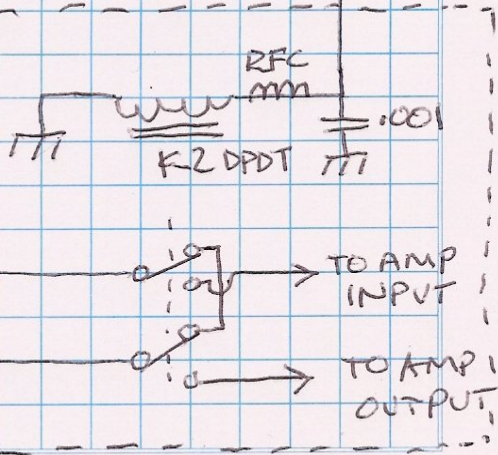 RFC
.001
K2 DPDT
TO AMP
INPUT
TO AMP
OUTPUT